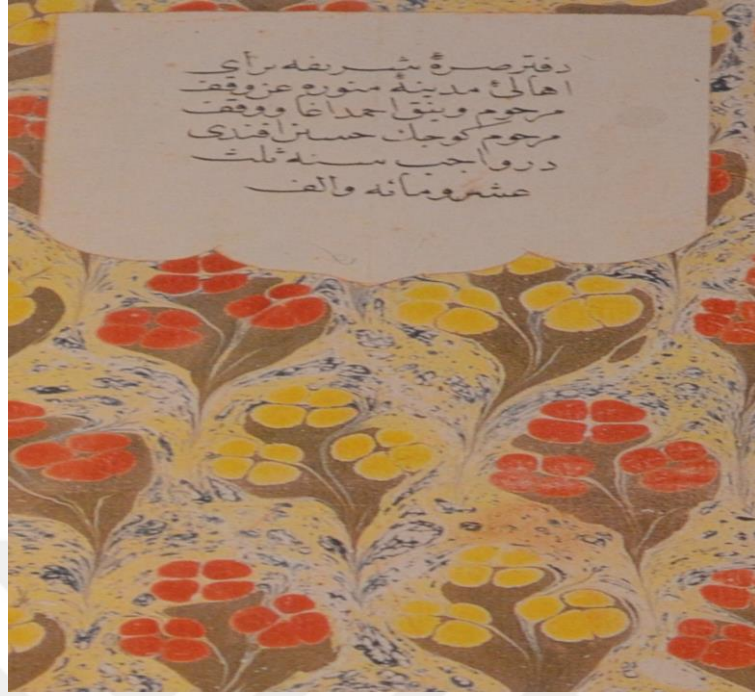 دفتر صرهٔ شریفه برای
اهالئ مدینهٔ منوره عن وقف
مرحوم احمد اغا و وقف
مرحوم کوجك حسن افندی
در واجب سنه ثلث
عشر ومائه والف